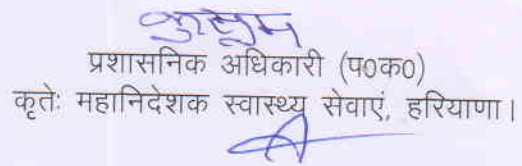 कुसुम
प्रशासनिक अधिकारी (प०क०)
कृतेः महानिदेशक स्वास्थ्य सेवाएं, हरियाणा।